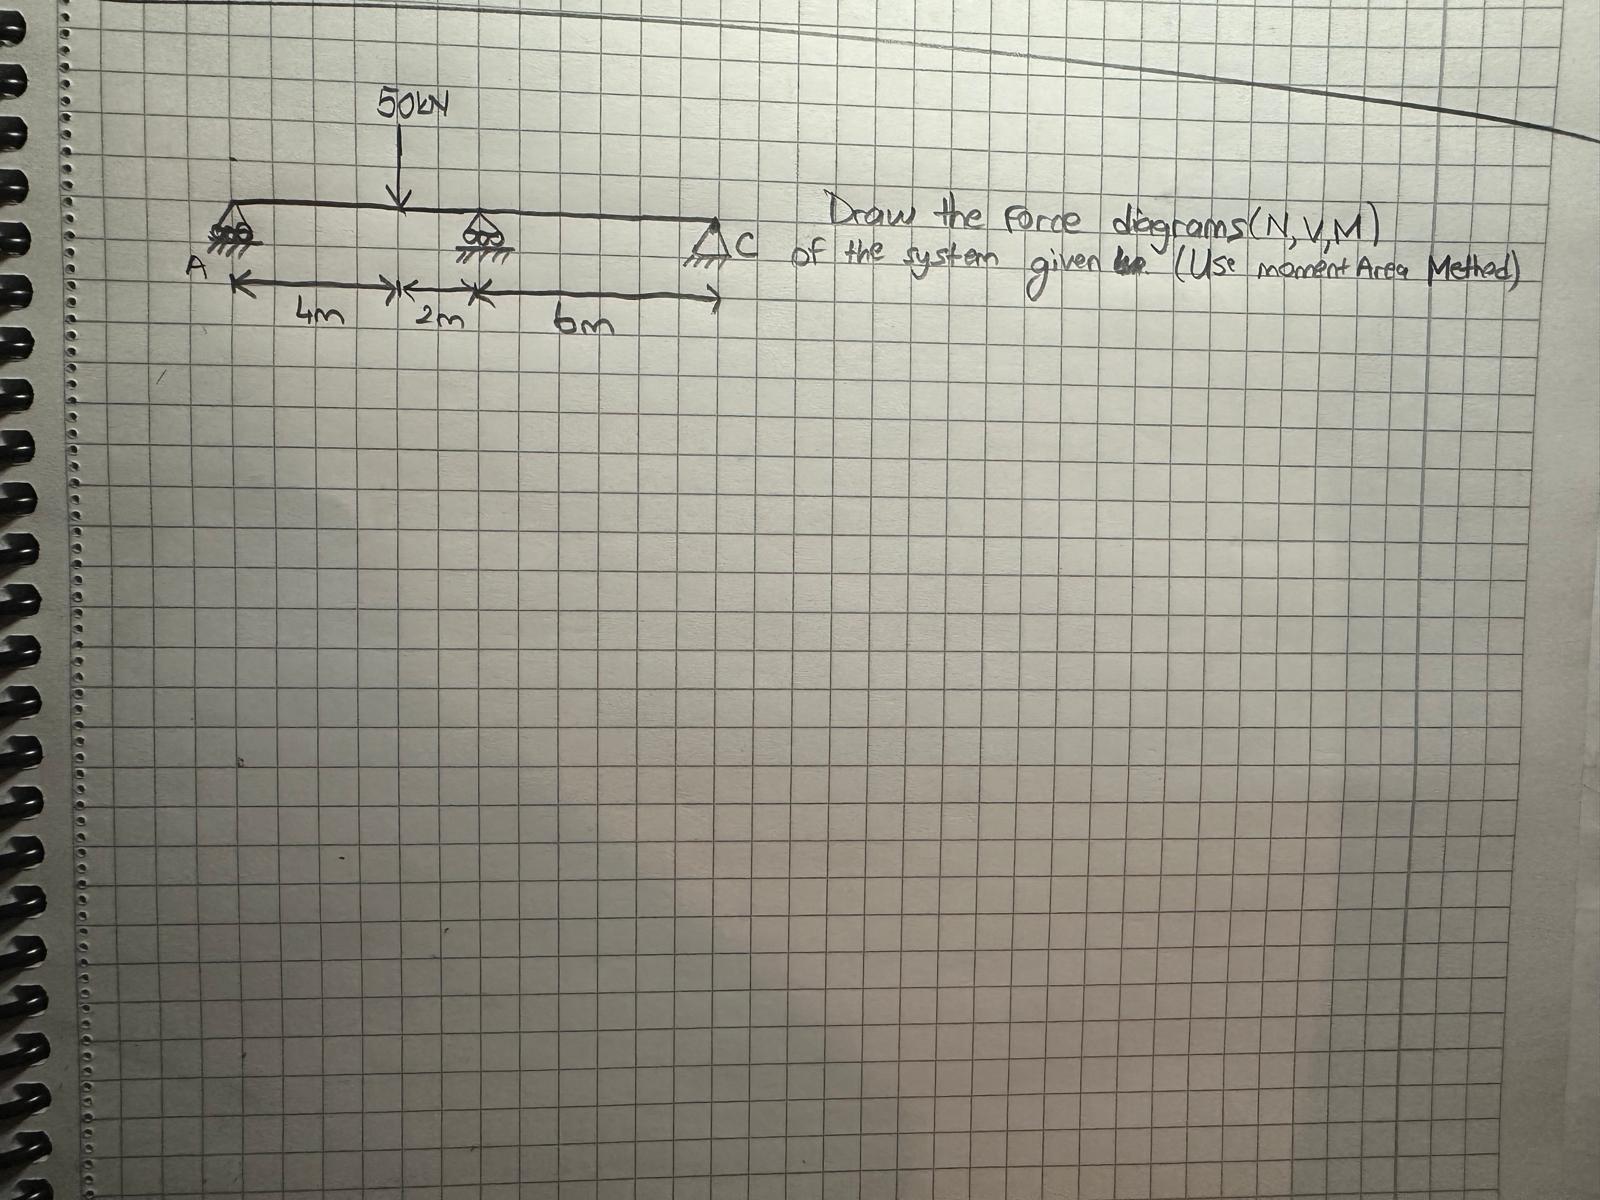 50kN
Draw the force diagrams (N,V,M)
A
C
of the system given. (Use moment Area Method)
4m
2m
6m